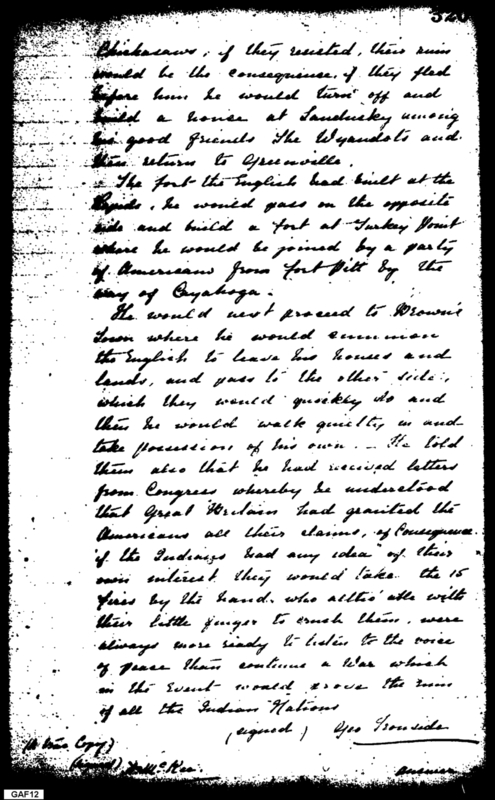 Chickasaws, if they resisted, their ruin
would be the consequense, if they fled
before him he would turn off and
build a house at Sandusky among
his good friends The Wyandots and
then return to Greenville.
The fort the English had built at the
Rapids, he would pass on the opposite
side and build a fort at Turkey Point
where he would be joined by a party
of Americans from Fort Pitt by the
way of Cayahoga.
He would next proceed to Brown's
Town where he would summon
the English to leave his houses and
lands, and pass to the other side,
which they would quickly do and
then he would walk quietly in and
take possession of his own. – He told
them also that he had received letters
from Congress whereby he understood
that Great Britain had granted the
Americans all their claims, of Consequence
if the Indians had any idea of their
own interest they would take the 15
fires by the hand, who altho' able with
their little finger to crush them, were
always more ready to listen to the voice
of peace than continue a War which
in the Event would prove the ruin
of all the Indian Nations
(signed) Geo Ironside
(A true Copy)
(signed) McKee.
answer
GAF12